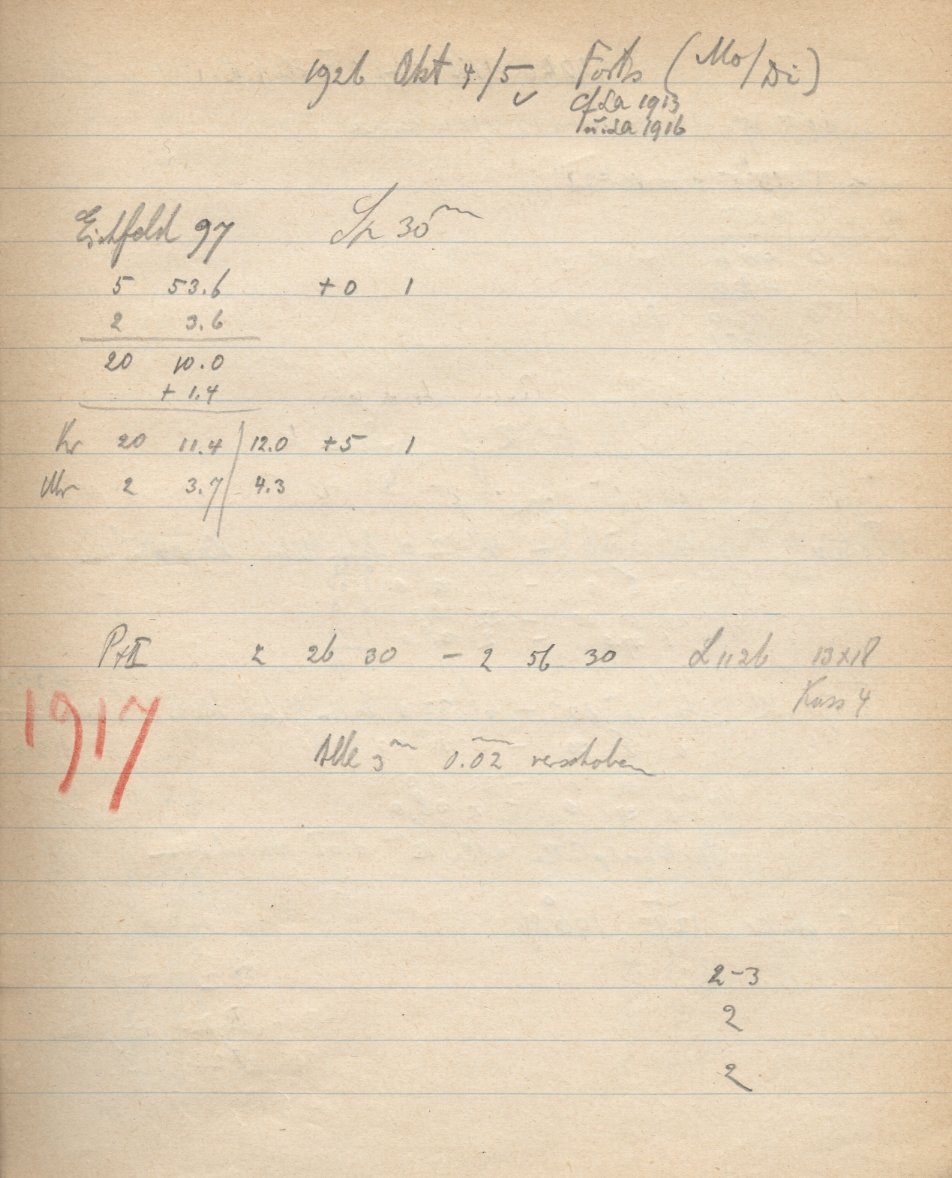 1926 Okt 4/5 Forts (Mo/Di)
cf La 1913
u. La 1916
Eichfeld 97 Sp 30m
5 53.6 +0 1
2 3.6
20 10.0
+ 1.4
Kr 20 11.4 / 12.0 +5 1
Uhr 2 3.7 / 4.3
Pt II 2 26 30 – 2 56 30 L 1126 13x18
Kass 4
1917
Alle 3m 0.02 verschoben
2-3
2
2